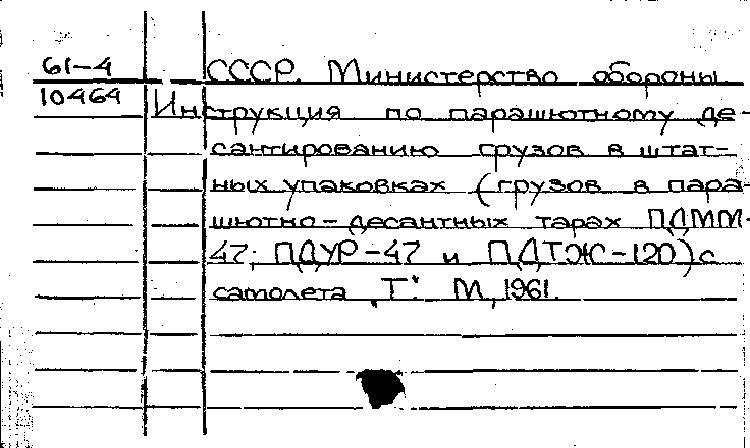 61-4 СССР. Министерство обороны
10464 Инструкция по парашютному де-
сантированию грузов в штат-
ных упаковках (грузов в пара-
шютно-десантных тарах ПДММ-
47; ПДУР-47 и ПДТЖ-120) с
самолета „Т". М, 1961.